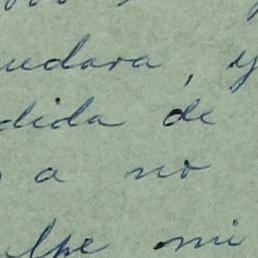 uedara, y
dida de
a no
lpe mi